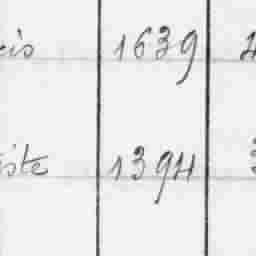 cis 1639
iste 1394